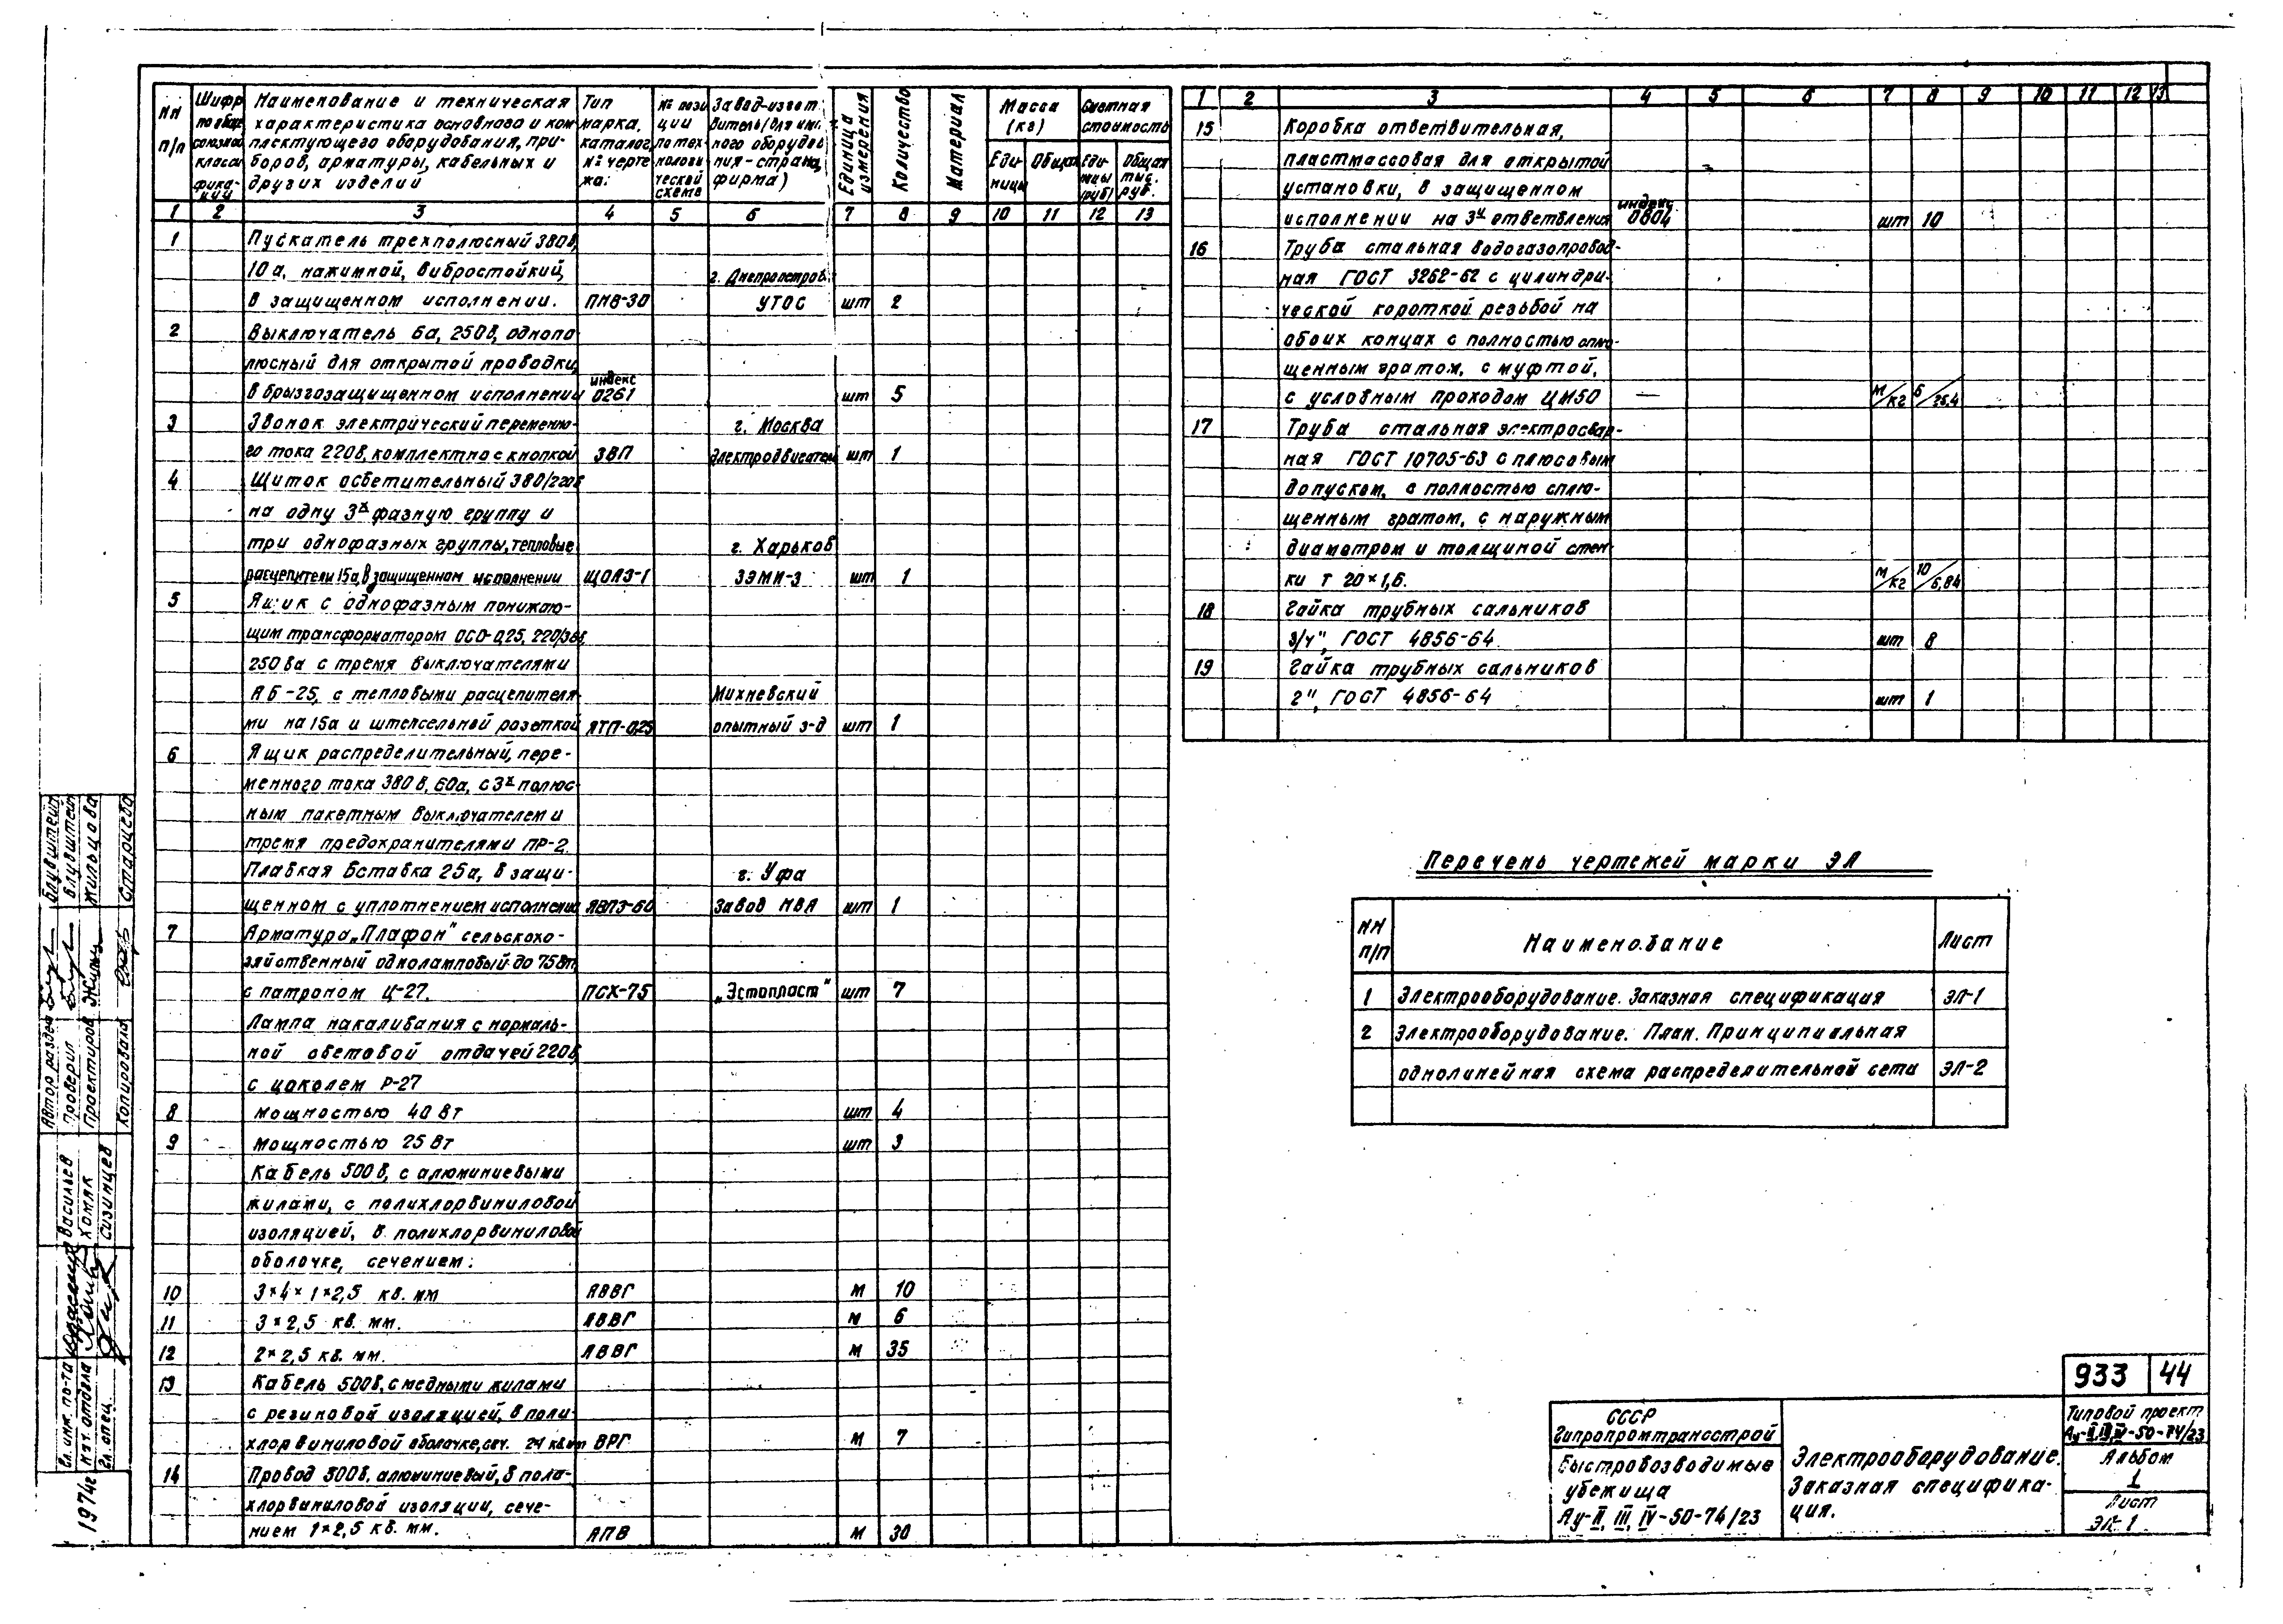 NN п/п
Шифр по обще союзной класси фика- ции
Наименование и техническая характеристика основного и ком плектующего оборудования, при- боров, арматуры, кабельных и других изделий
Тип марка, каталог, № черте жа:
№ пози ции по тех- нологи ческой схеме
Завод-изгот. витель (для имп. ного оборудов ния-страна, фирма)
Единица измерения
Количество
Материал
Масса (кг)
Еди- ницы
Общая
Сметная стоимость
Еди- ницы (руб)
Общая тыс. руб.
1 2 3 4 5 6 7 8 9 10 11 12 13
1 Пускатель трехполюсный 380в,
10а, нажимной, вибростойкий, г. Днепропетров.
в защищенном исполнении. ПНВ-30 УТОС шт 2
2 Выключатель 6а, 250в, однопо
люсный для открытой проводки,
в брызгозащищенном исполнении индекс 0261 шт 5
3 Звонок электрический переменно- г. Москва
го тока 220в, комплектно с кнопкой ЗВП электродвигатель шт 1
4 Щиток осветительный 380/220в
на одну 3х фазную группу и
три однофазных группы, тепловые г. Харьков
расцепители 15а, в защищенном исполнении ЩОАЗ-1 ЗЭМИ-3 шт 1
5 Ящик с однофазным понижаю-
щим трансформатором ОСО-0,25, 220/36в,
250ва с тремя выключателями
АБ-25, с тепловыми расцепителя- Михневский
ми на 15а и штепсельной розеткой ЯТП-0,25 опытный з-д шт 1
6 Ящик распределительный, пере-
менного тока 380в, 60а, с 3х полюс-
ным пакетным выключателем и
тремя предохранителями ПР-2.
Плавкая вставка 25а, в защи- г. Уфа
щенном с уплотнением исполнении ЯВПЗ-60 Завод НВА шт 1
7 Арматура „Плафон" сельскохо-
зяйственный одноламповый до 75Вт,
с патроном Ц-27. ПСХ-75 „Эстопласт" шт 7
Лампа накаливания с нормаль-
ной световой отдачей 220в,
с цоколем Р-27
8 мощностью 40 Вт шт 4
9 мощностью 25 Вт шт 3
Кабель 500в, с алюминиевыми
жилами, с полихлорвиниловой
изоляцией, в полихлорвиниловой
оболочке, сечением:
10 3×4×1×2,5 кв. мм АВВГ м 10
11 3×2,5 кв. мм. АВВГ м 6
12 2×2,5 кв. мм. АВВГ м 35
13 Кабель 500в, с медными жилами
с резиновой изоляцией, в поли-
хлорвиниловой оболочке, сеч. кв.мм ВРГ м 7
14 Провод 500в, алюминиевый, в поли-
хлорвиниловой изоляции, сече-
нием 1×2,5 кв. мм. АПВ м 30
1 2 3 4 5 6 7 8 9 10 11 12 13
15 Коробка ответвительная,
пластмассовая для открытой
установки, в защищенном
исполнении на 3х ответвления индекс 0804 шт 10
16 Труба стальная водогазопровод-
ная ГОСТ 3262-62 с цилиндри-
ческой короткой резьбой на
обоих концах с полностью сплю-
щенным гратом, с муфтой,
с условным проходом ЦМ50 — м/кг
17 Труба стальная электросвар-
ная ГОСТ 10705-63 с плюсовым
допуском, с полностью сплю-
щенным гратом, с наружным
диаметром и толщиной стен-
ки Т 20×1,6. м/кг 10/6,84
18 Гайка трубных сальников
3/4", ГОСТ 4856-64. шт 8
19 Гайка трубных сальников
2", ГОСТ 4856-64 шт 1
Перечень чертежей марки ЭЛ
NN п/п Наименование Лист
1 Электрооборудование. Заказная спецификация ЭЛ-1
2 Электрооборудование. План. Принципиальная
однолинейная схема распределительной сети ЭЛ-2
933 44
СССР
Гипропромтрансстрой
Быстровозводимые
убежища
Ау-II, III, IV-50-74/23
Электрооборудование.
Заказная специфика-
ция.
Типовой проект
Ау-II,III,IV-50-74/23
Альбом
1
Лист
ЭЛ-1
Автор раздел Блувштейн
Проверил Блувштейн
Проектиров. Жильцова
Копировала Старцева
Гл. инж. пр-та Васильев
Нач. отдела Хомяк
Гл. спец. Сизинцев
1974г